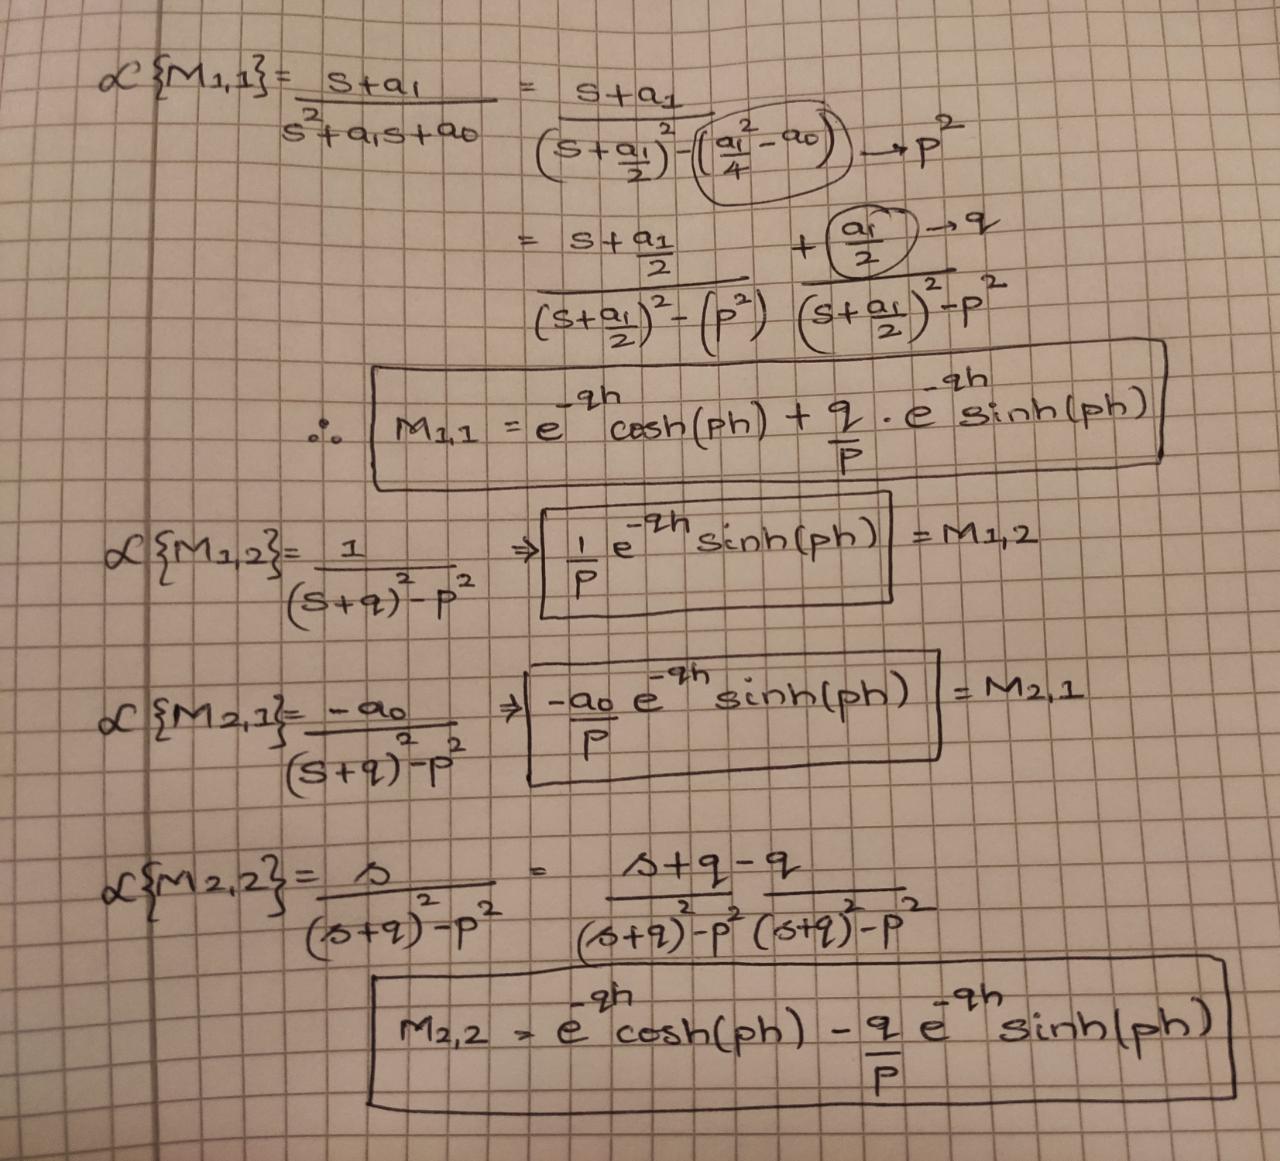 ℒ{M1,1} = s+a1 / s²+a1s+a0 = s+a1 / (s+a1/2)² - (a1²/4 - a0) → p²
= s+a1/2 / (s+a1/2)² - (p²) + a1/2 → q / (s+a1/2)² - p²
∴ M1,1 = e^-qh cosh(ph) + q/p . e^-qh sinh(ph)
ℒ{M1,2} = 1 / (s+q)² - p² ⇒ 1/p e^-qh sinh(ph) = M1,2
ℒ{M2,1} = -a0 / (s+q)² - p² ⇒ -a0/p e^-qh sinh(ph) = M2,1
ℒ{M2,2} = s / (s+q)² - p² = s+q / (s+q)² - p² - q / (s+q)² - p²
M2,2 = e^-qh cosh(ph) - q/p e^-qh sinh(ph)